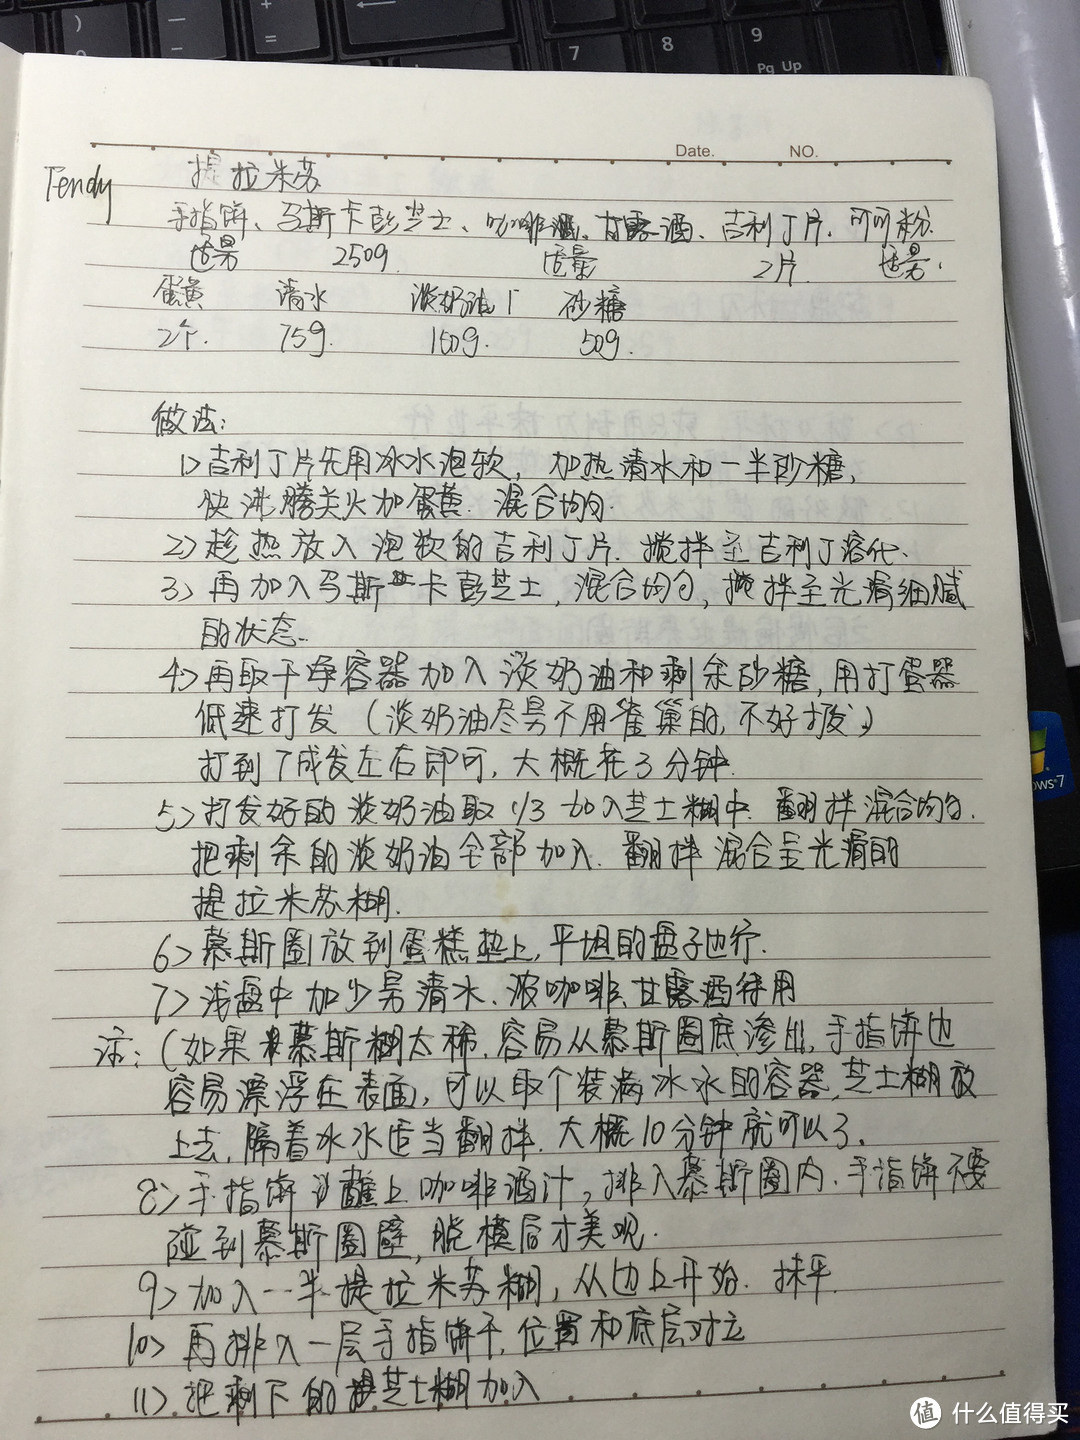 7
8
9
Pg Up
Date.
NO.
Tendy
提拉米苏
手指饼、马斯卡彭芝士、咖啡酒、甘露酒、吉利丁片、可可粉.
适量 250g. 适量 2片. 适量.
蛋黄 清水 淡奶油 砂糖
2个. 75g. 150g. 50g.
做法:
1>吉利丁片先用冰水泡软, 加热清水和一半砂糖,
快沸腾关火加蛋黄. 混合均匀.
2>趁热放入泡软的吉利丁片. 搅拌至吉利丁溶化.
3>再加入马斯卡彭芝士, 混合均匀, 搅拌至光滑细腻
的状态.
4>再取干净容器加入淡奶油和剩余砂糖, 用打蛋器
低速打发 (淡奶油尽量不用雀巢的, 不好打发)
打到7成发左右即可, 大概花3分钟.
5>打发好的淡奶油取1/3加入芝士糊中. 翻拌混合均匀.
把剩余的淡奶油全部加入. 翻拌混合呈光滑的
提拉米苏糊.
6>慕斯圈放到蛋糕垫上, 平坦的盘子也行.
7>浅盘中加少量清水、浓咖啡、甘露酒待用
注:(如果慕斯糊太稀. 容易从慕斯圈底渗出, 手指饼也
容易漂浮在表面, 可以取个装满冰水的容器, 芝士糊放
上去, 隔着冰水适当翻拌. 大概10分钟就可以了.
8>手指饼蘸上咖啡酒汁, 排入慕斯圈内. 手指饼不要
碰到慕斯圈壁, 脱模后才美观.
9>加入一半提拉米苏糊, 从边上开始. 抹平.
10>再排入一层手指饼干, 位置和底层对立
11>把剩下的芝士糊加入
ows 7
值 什么值得买